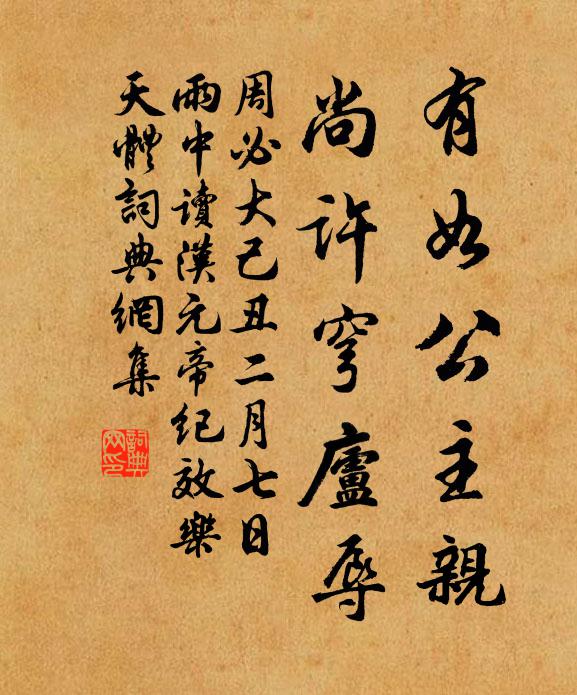 有如公主親
尚許穹廬辱
周必大己丑二月七日
雨中讀漢元帝紀效樂
天體詞典網集
詞典網印